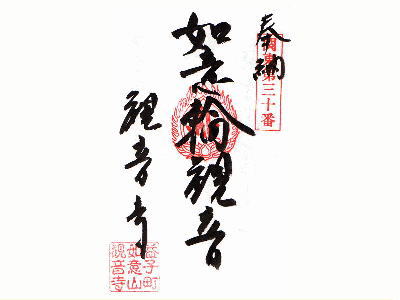 奉納
関東第三十番
如意輪観音
観音寺
益子町
如意山
観音寺